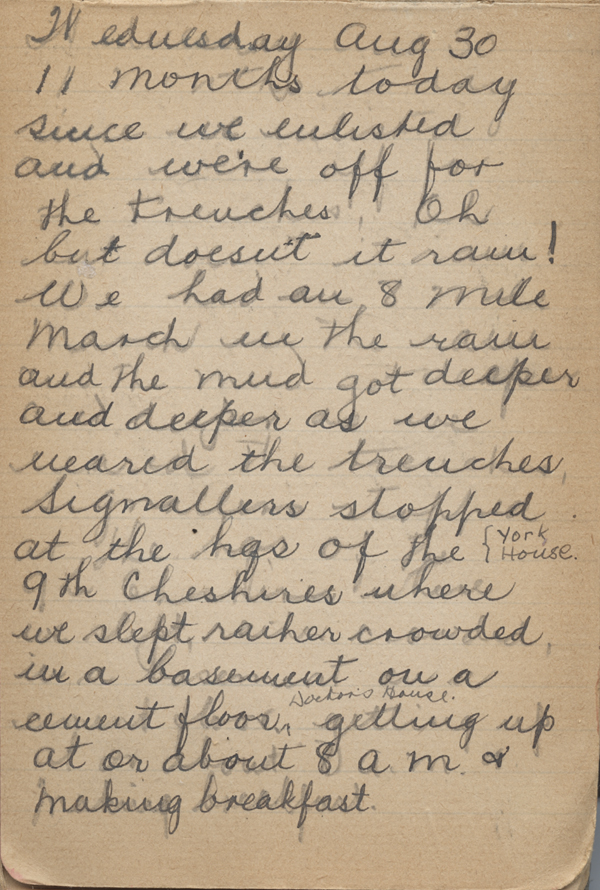 Wednesday Aug 30
11 months today
since we enlisted
and we're off for
the trenches! Oh
but doesn't it rain!
We had an 8 mile
march in the rain
and the mud got deeper
and deeper as we
neared the trenches.
Signallers stopped
at the hqs of the {York House.
9th Cheshires where
we slept rather crowded,
in a basement on a
Doctor's House.
cement floor, getting up
at or about 8 a.m. &
making breakfast.